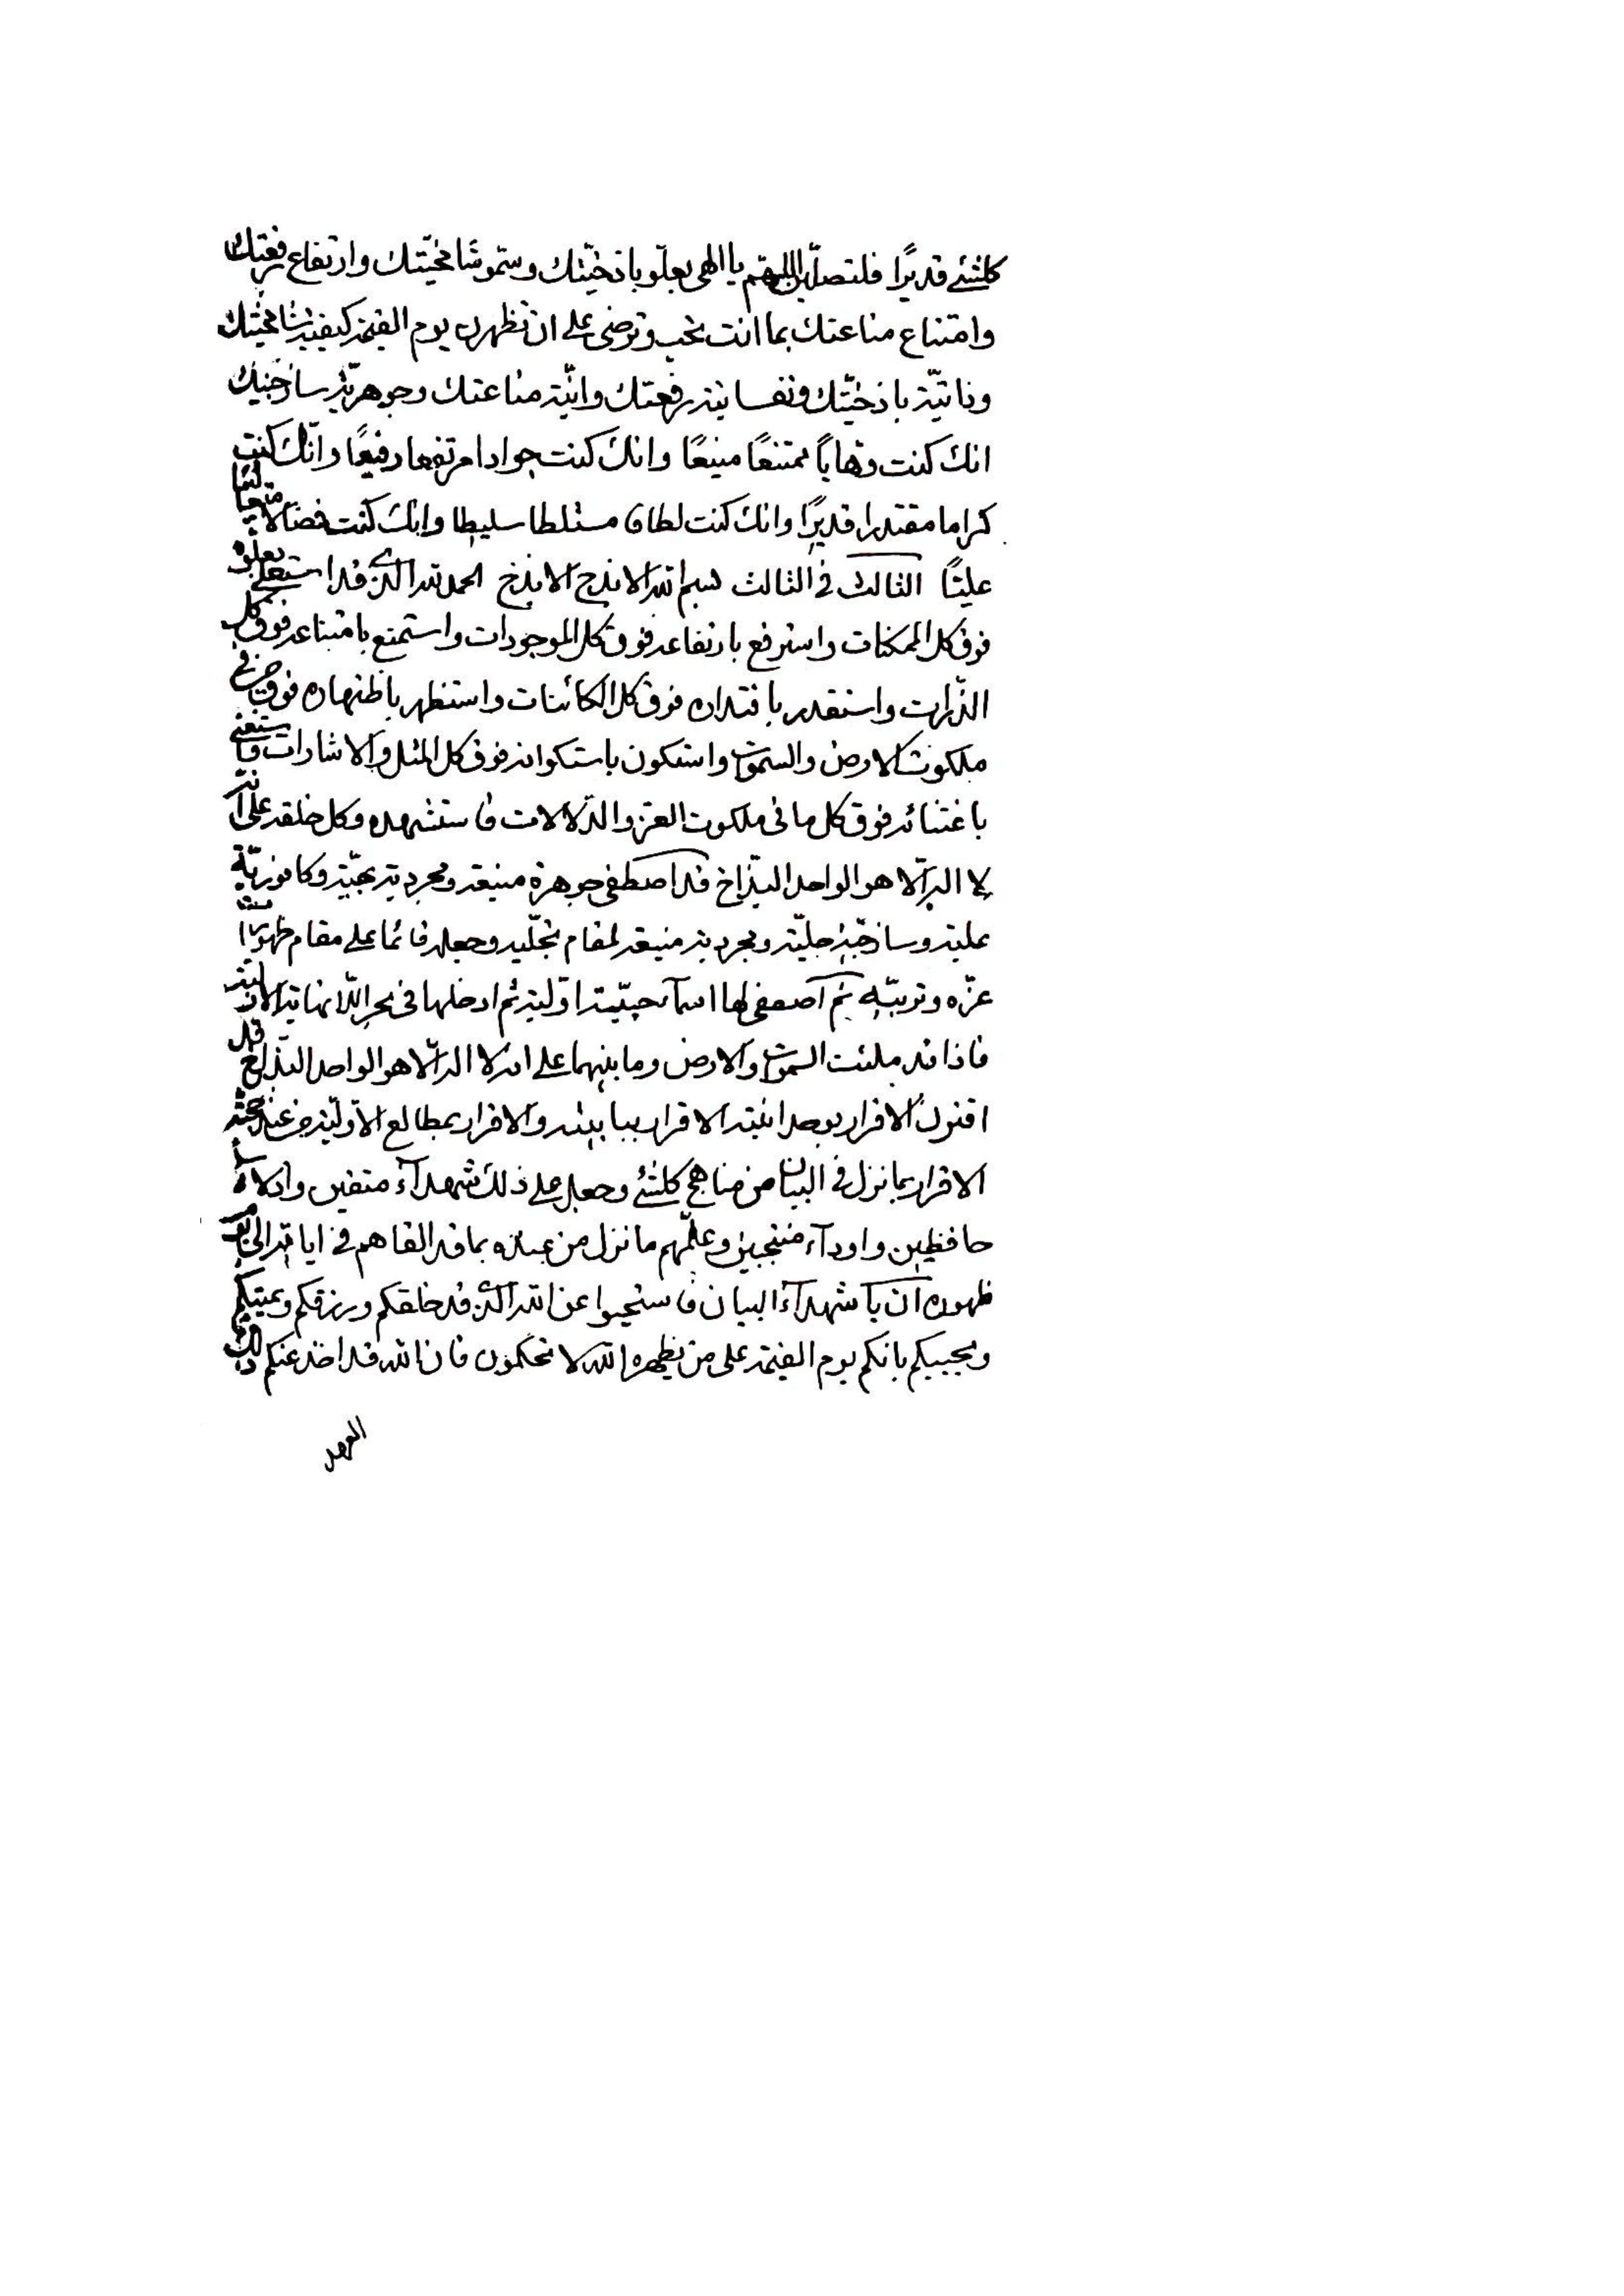 كلشئ قديرًا فلتصلين اللهم يا الهى بعلو باذخيتك وسمو شامخيتك وارتفاع رفعتك
وامتناع مناعتك بما انت تحب وترضى على ان تظهرن يوم القيمة كيفية شامخيتك
وذاتية باذخيتك ونفسانية رفعتك وانية مناعتك وجوهرية ساذجيتك
انك كنت وهاباً ممتنعًا منيعًا وانك كنت جوادا مرتفعا رفيعًا وانك كنت
كراما مقتدرا قديرًا وانك كنت لطافا متسلطا سليطا وانك كنت فضالا متعاليا
عليًا الثالث فى الثالث بسم الله الابذخ الابذخ الحمد لله الذى قد استعلى بعلوه
فوق كل الممكنات واسترفع بارتفاعه فوق كل الموجودات واستمنع بامتناعه فوق كل
الذرات واستقدر باقتداره فوق كل الكائنات واستظهر باظتهاره فوق من فى
ملكوت الارض والسموات واستكون باستكوانه فوق كل المثل والاشارات فاستغنى
باغتنائه فوق كل ما فى ملكوت العز والدلالات فاستشهده وكل خلقه على انه
لا اله الا هو الواحد البذاخ قد اصطفى جوهرة منيعة ومجردية بهية وكافورية
علية وساذجية جلية ومجردية منيعة لمقام تجليه وجعله قائما على مقام ظهورات
عزه وتربيته ثم اصطفى لها اسماء حيية اولية ثم ادخلها فى بحر اللانهاية الازلية
فاذا قد ملئت السموات والارض وما بينهما على انه لا اله الا هو الواحد البذاخ قد
اقترن الاقرار بوحدانيته الاقرار ببابيته والاقرار بمطالع الاولية من عند حجته
الاقرار بما نزل فى البيان من مناهج كلشئ وجعل على ذلك شهداء متقين وادلاء
حافظين واوداء منتجبين وعلمهم ما نزل من عنده بما قد القاهم فى اياته الى يوم
ظهوره ان يا شهداء البيان فاستحيوا عن الله الذى قد خلقكم ورزقكم ويميتكم
ويحييكم بانكم يوم القيمة على من يظهره الله لا تحكمون فان الله قد اخذ عنكم ذلك
العهد